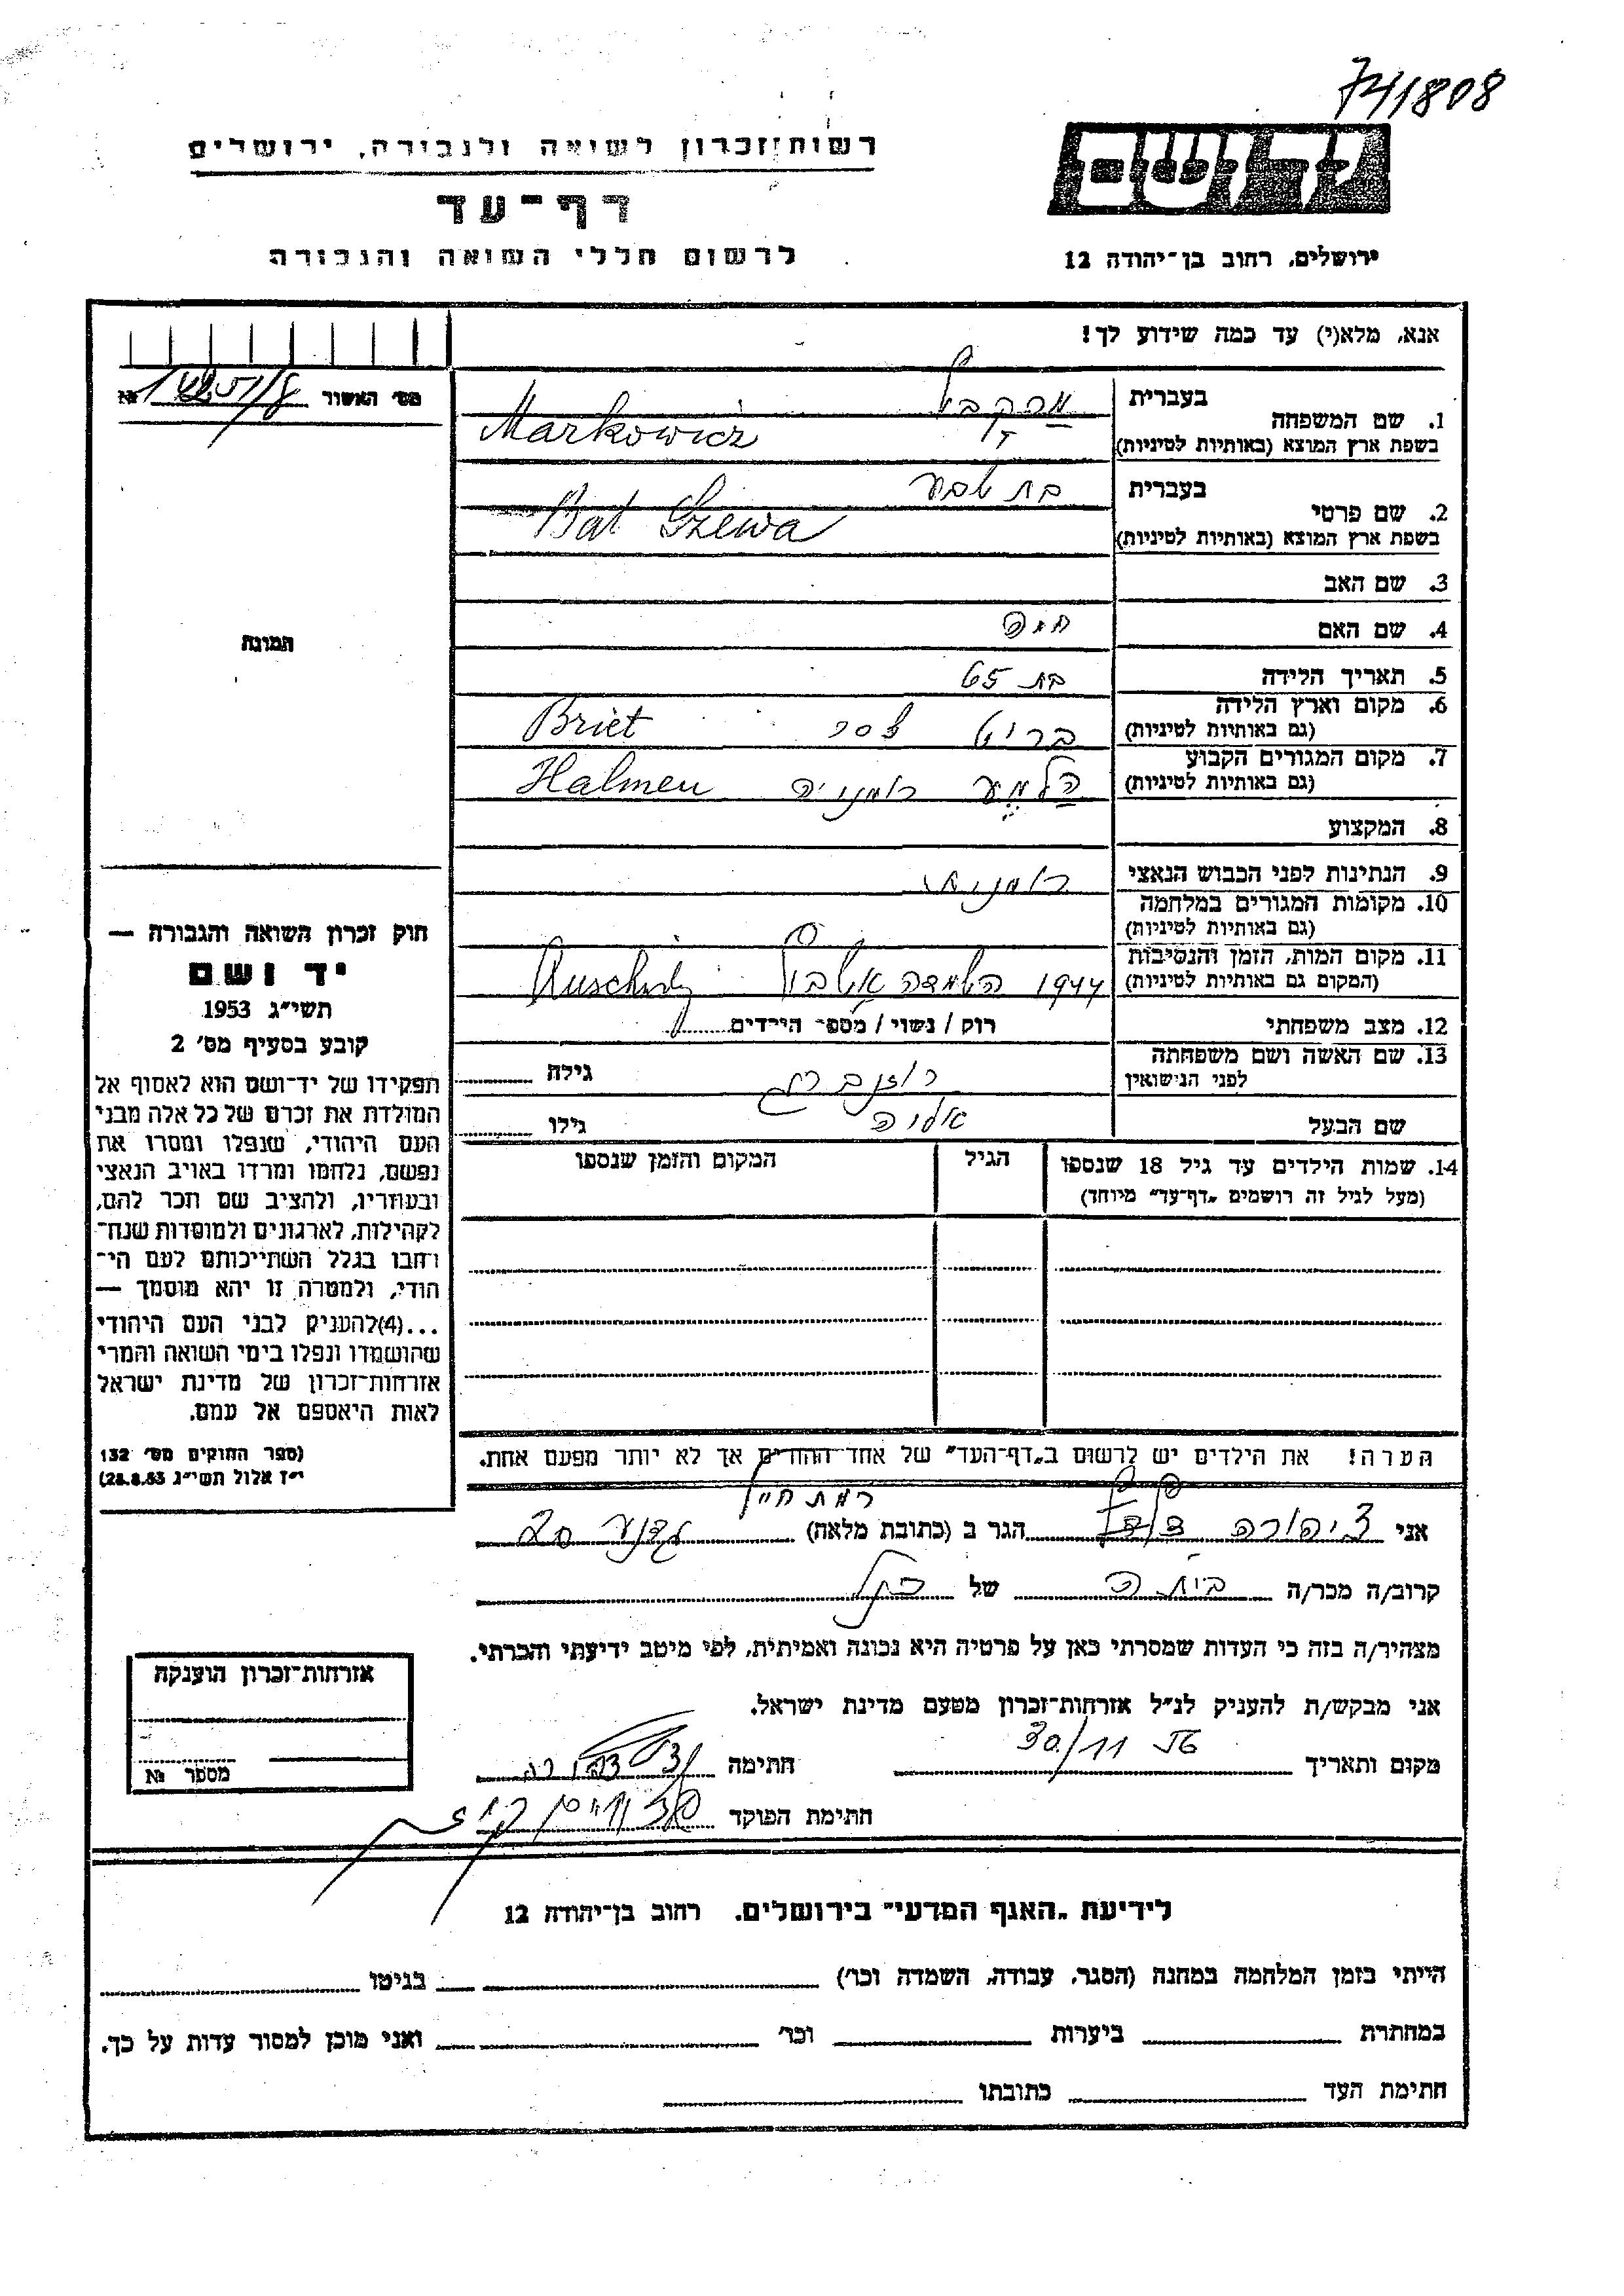 741808
רשות זכרון לשואה ולגבורה, ירושלים
יד ושם
דף-עד
לרשום חללי השואה והגבורה
ירושלים, רחוב בן-יהודה 12
אנא, מלא(י) עד כמה שידוע לך!
מס' האשור №
בעברית
1. שם המשפחה
בשפת ארץ המוצא (באותיות לטיניות)
Markowicz
בעברית בת שבע
2. שם פרטי
בשפת ארץ המוצא (באותיות לטיניות)
Bat Szewa
3. שם האב
4. שם האם חיה
5. תאריך הלידה בת 65
6. מקום וארץ הלידה
(גם באותיות לטיניות) בריט Briet
7. מקום המגורים הקבוע
(גם באותיות לטיניות) הלמע רומניה Halmeu
8. המקצוע
9. הנתינות לפני הכבוש הנאצי רומנית
10. מקומות המגורים במלחמה
(גם באותיות לטיניות)
11. מקום המות, הזמן והנסיבות
(המקום גם באותיות לטיניות) 1944 השמדה
12. מצב משפחתי רוק / נשוי / מספר הילדים
13. שם האשה ושם משפחתה
לפני הנישואין רוזנברג גילה
שם הבעל אליה גילו
14. שמות הילדים עד גיל 18 שנספו
(מעל לגיל זה רושמים "דף-עד" מיוחד)
הגיל
המקום והזמן שנספו
הערה! את הילדים יש לרשום ב"דף-העד" של אחד ההורים אך לא יותר מפעם אחת.
תמונה
חוק זכרון השואה והגבורה —
יד ושם
תשי"ג 1953
קובע בסעיף מס' 2
תפקידו של יד-ושם הוא לאסוף אל
המולדת את זכרם של כל אלה מבני
העם היהודי, שנפלו ומסרו את
נפשם, נלחמו ומרדו באויב הנאצי
ובעוזריו, ולהציב שם וזכר להם,
לקהילות, לארגונים ולמוסדות שנח-
רחבו בגלל השתייכותם לעם הי-
הודי, ולמטרה זו יהא מוסמך —
...(4) להעניק לבני העם היהודי
שהושמדו ונפלו בימי השואה והמרי
אזרחות-זכרון של מדינת ישראל
לאות היאספם אל עמם.
(ספר החוקים מס' 132
י"ז אלול תשי"ג 28.8.53)
רמת חיים
אני צפורה הגר ב (כתובת מלאה)
קרוב/ה מכר/ה של
מצהיר/ה בזה כי העדות שמסרתי כאן על פרטיה היא נכונה ואמיתית, לפי מיטב ידיעתי והכרתי.
אני מבקש/ת להעניק לנ"ל אזרחות-זכרון מטעם מדינת ישראל.
מקום ותאריך 30/11 חתימה
חתימת הפוקד
אזרחות-זכרון הוענקה
מספר №
לידיעת "האגף המדעי" בירושלים. רחוב בן-יהודה 12
הייתי בזמן המלחמה במחנה (הסגר, עבודה, השמדה וכו') בגיטו
במחתרת ביערות וכו' ואני מוכן למסור עדות על כך.
חתימת העד כתובתו